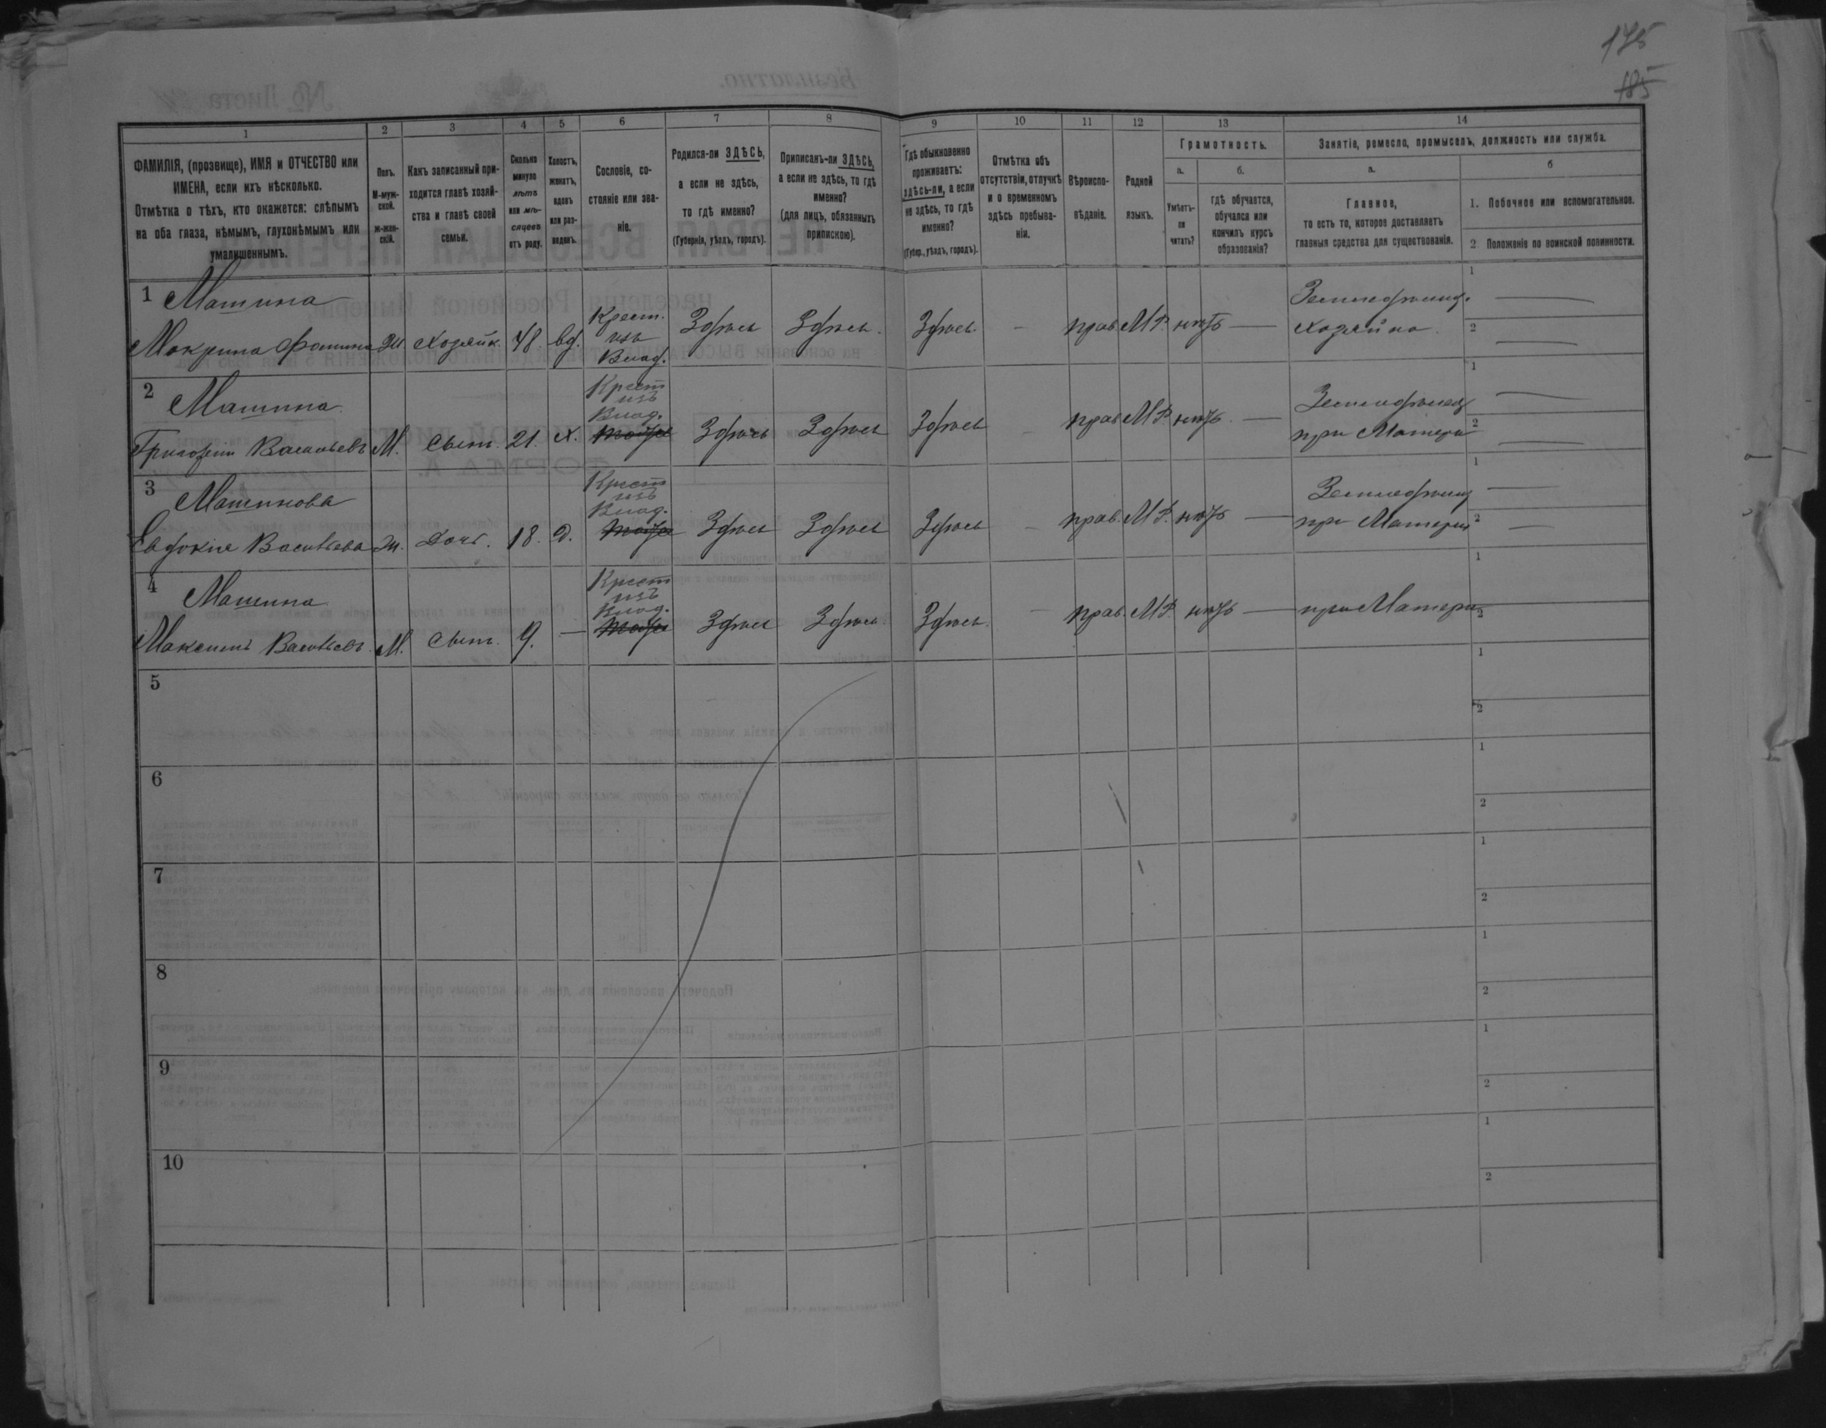 175
185
1
2
3
4
5
6
7
8
9
10
11
12
13
14
ФАМИЛІЯ, (прозвище), ИМЯ и ОТЧЕСТВО или
ИМЕНА, если ихъ нѣсколько.
Отмѣтка о тѣхъ, кто окажется: слѣпымъ
на оба глаза, нѣмымъ, глухонѣмымъ или
умалишеннымъ.
Полъ.
М-муж-
ской.
ж-жен-
скій.
Какъ записанный при-
ходится главѣ хозяй-
ства и главѣ своей
семьи.
Сколько
минуло
лѣтъ
или мѣ-
сяцевъ
отъ роду.
Холостъ,
женатъ,
вдовъ
или раз-
веденъ.
Сословіе, со-
стояніе или зва-
ніе.
Родился-ли ЗДѢСЬ,
а если не здѣсь,
то гдѣ именно?
(Губернія, уѣздъ, городъ).
Приписанъ-ли ЗДѢСЬ,
а если не здѣсь, то гдѣ
именно?
(для лицъ, обязанныхъ
припискою).
Гдѣ обыкновенно
проживаетъ:
здѣсь-ли, а если
не здѣсь, то гдѣ
именно?
(Губер., уѣздъ, городъ).
Отмѣтка объ
отсутствіи, отлучкѣ
и о временномъ
здѣсь пребыва-
ніи.
Вѣроиспо-
вѣданіе.
Родной
языкъ.
Грамотность.
а.
Умѣетъ-
ли
читать?
б.
гдѣ обучается,
обучался или
кончилъ курсъ
образованія?
Занятіе, ремесло, промыселъ, должность или служба.
а.
Главное,
то есть то, которое доставляетъ
главныя средства для существованія.
б
1. Побочное или вспомогательное.
2 Положеніе по воинской повинности.
1 Машина
Мокрина Фомина Ж Хозяйк. 48 вд. Крест. изъ Влад. Здѣсь Здѣсь. Здѣсь. — прав. М.Р. нѣтъ — Земледѣлец. хозяйка. 1 — 2 —
2 Машина
Григорій Васильевъ М. Сынъ. 21. Х. Крест изъ Влад. Здѣсь Здѣсь Здѣсь прав М Р. нѣтъ — Земледѣлец при Матери 1 — 2 —
3 Машинова
Евдокія Васильева Ж. Дочь. 18. Д. Крест изъ Влад. Здѣсь Здѣсь Здѣсь — прав. М Р. нѣтъ — Земледѣлец при Матери 1 — 2 —
4 Машина
Максимъ Васильевъ М. Сынъ. 9. — Крест изъ Влад. Здѣсь Здѣсь Здѣсь. — прав. М Р. нѣтъ — при Матери 1 2
5 1 2
6 1 2
7 1 2
8 1 2
9 1 2
10 1 2